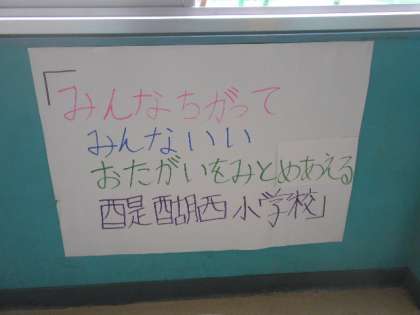 「みんなちがって
みんないい
おたがいをみとめあえる
醍醐西小学校」